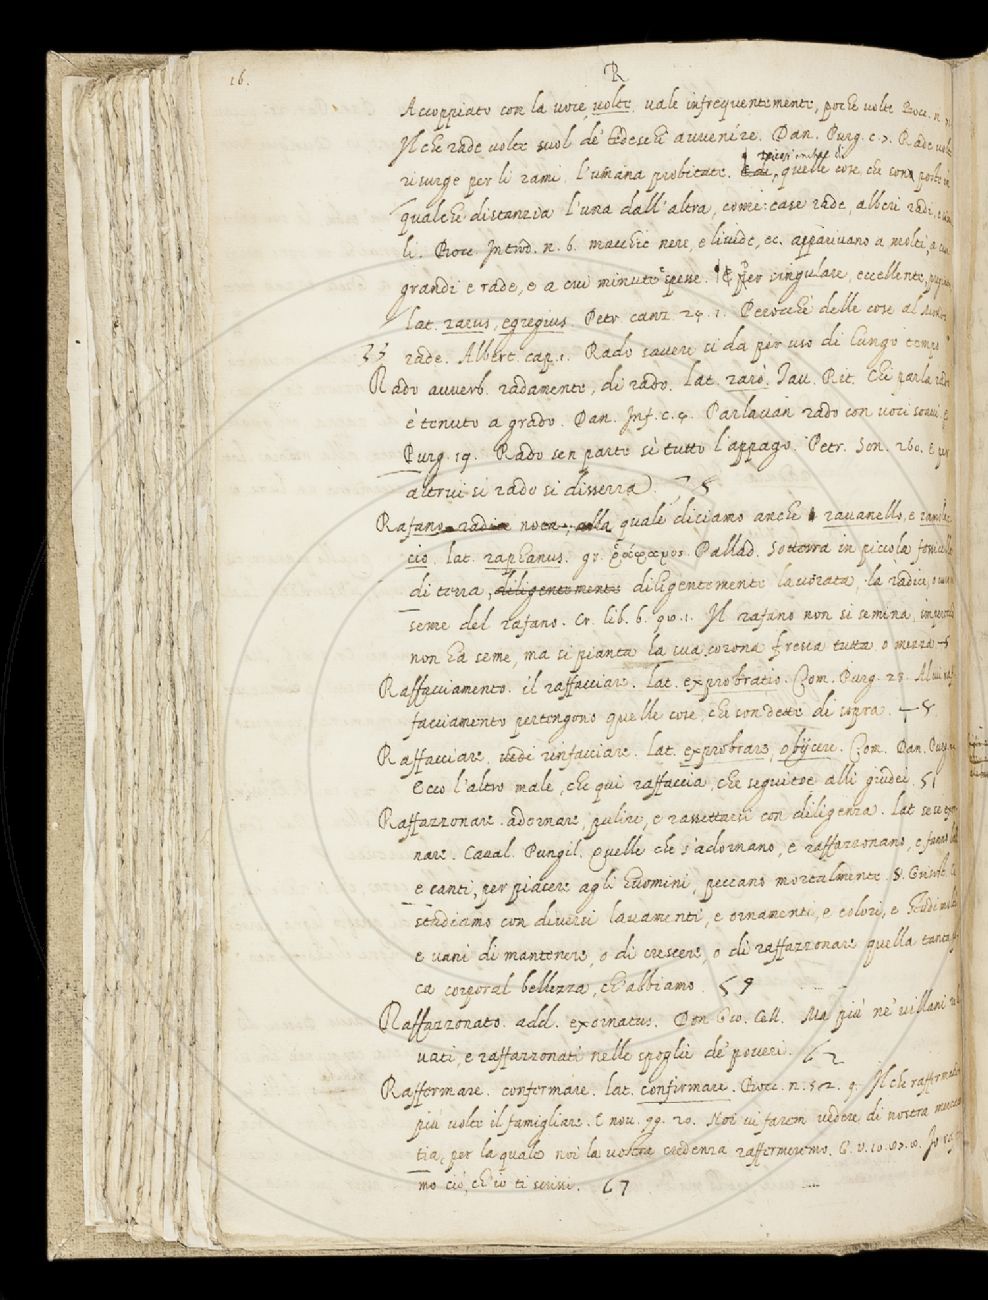 16.
R
Accoppiato con la voce volte, vale infrequentemente, poche volte. Bocc. n.
Il che rade volte suol de' tedeschi avvenire. Dan. Purg. c. 7. Rade volte
risurge per li rami l'umana probitate. quelle cose, che sono poste in
qualche distanzia l'una dall'altra, come: case rade, alberi radi, e
li. Bocc. Introd. n. 6. macchie nere, e livide, ec. apparivano a molti, a cui
grandi e rade, e a cui minute e spesse. Per singulare, eccellente,
lat. rarus, egregius. Petr. canz. 24. 1. Perocchè delle cose al
rade. Albert. cap. 1. Rado savere si dà per uso di lungo tempo
Rado avverb. radamente, di rado. lat. rarò. Tav. Rit. Chi parla rado
è tenuto a grado. Dan. Inf. c. 4. Parlavan rado con voci soavi. E
Purg. 19. Rado sen parte sì tutto l'appago. Petr. Son. 260. E per
altrui si rado si disserra. 38
Rafano radice nota, alla quale diciamo anche ravanello, e
cio. lat. raphanus. gr. Pallad. Sotterra in piccola
di terra, diligentemente diligentemente lavorata, la radice, o
seme del rafano. Cr. lib. 6. 90. 1. Il rafano non si semina,
non ha seme, ma si pianta la sua corona fresca tutta o mezza
Raffacciamento. il raffacciare. lat. exprobratio. Com. Purg. 23. Al
facciamento pertengono quelle cose, che son dette di sopra.
Raffacciare, vedi rinfacciare. lat. exprobrare, obijcere. Com. Dan. Purg.
Ecco l'altro male, che qui raffaccia, che seguitoe alli giudei. 51
Raffazzonare. adornare, pulire, e rassettarsi con diligenza. lat. sese
nare. Caval. Pungil. Quelle che s'adornano, e raffazzonano, e fanno
e canti, per piacere agli huomini, peccano mortalmente. S. Grisost.
studiamo con diversi lavamenti, e ornamenti, e colori, e
e vani di mantenere, o di crescere, o di raffazzonare quella tanta
ca corporal bellezza, ch'abbiamo. 59
Raffazzonato. add. exornatus. Don Gio. Cell. Ma più ne' villani
vati, e raffazzonati nelle spoglie de' poveri. 62
Raffermare. confermare. lat. confirmare. Bocc. n. 52. 9. Il che raffermando
più volte il famigliare. E nov. 99. 20. Noi vi farem vedere di nostra
tia, per la quale noi la vostra credenza raffermeremo. G. V. 10. 87. 8. Io
mo ciò, ch'io ti scrissi. 67